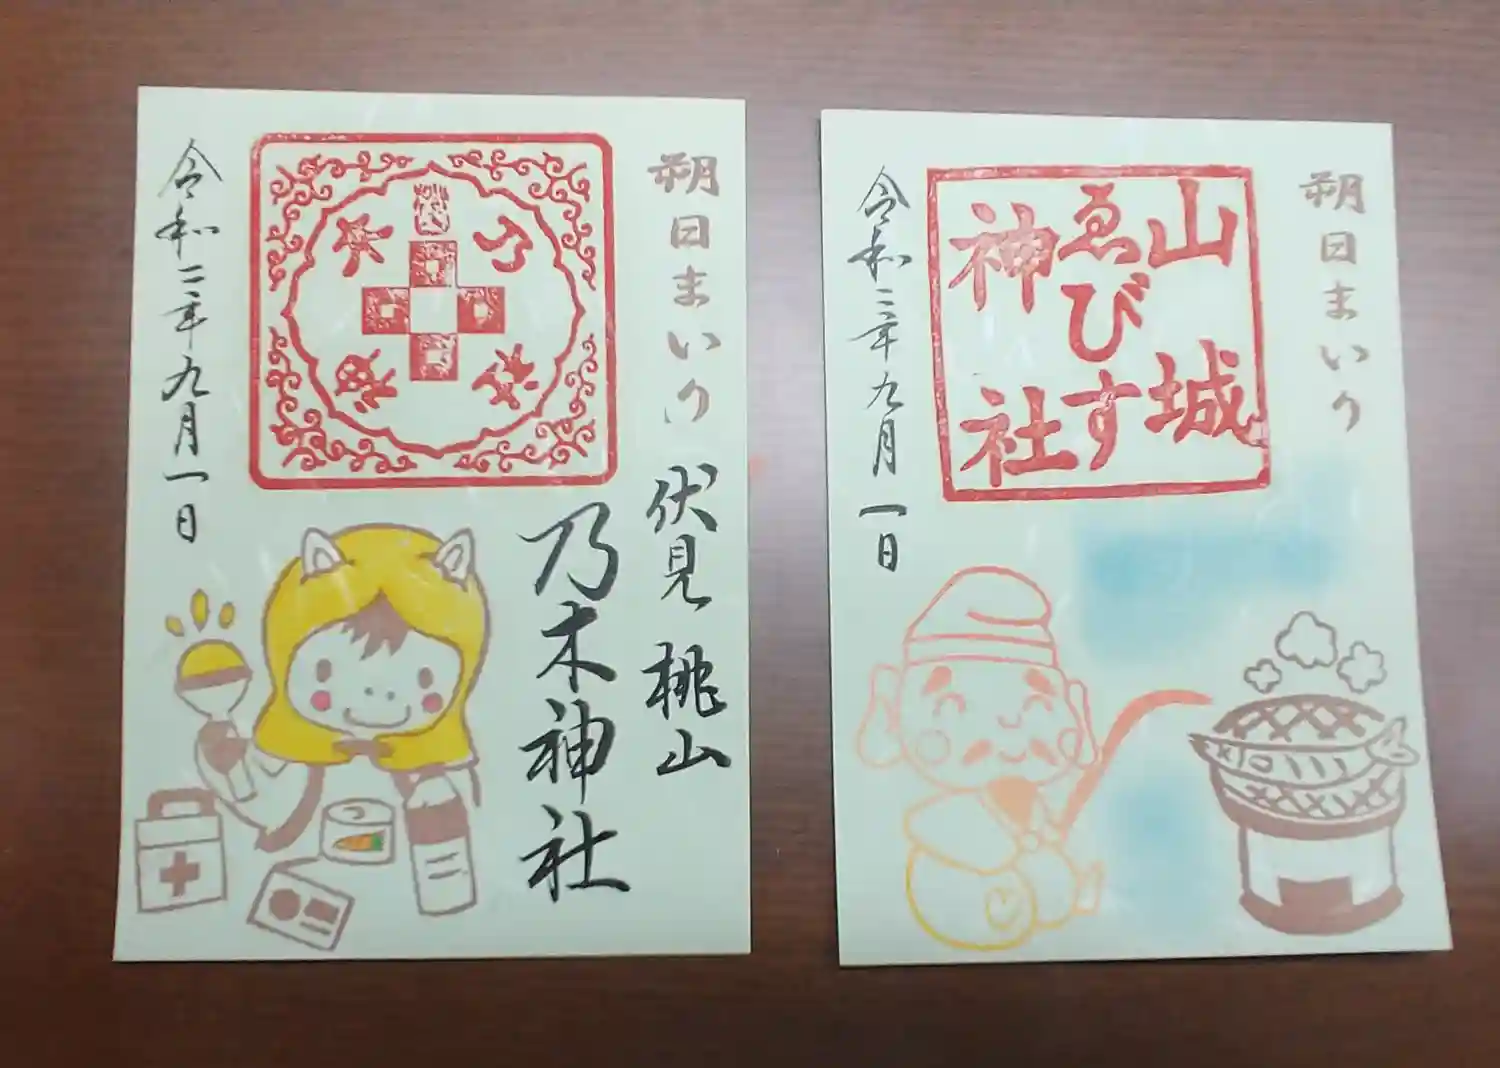 朔日まいり
伏見桃山
乃木神社
令和三年九月一日
朔日まいり
山城
ゑびす
神社
令和三年九月一日